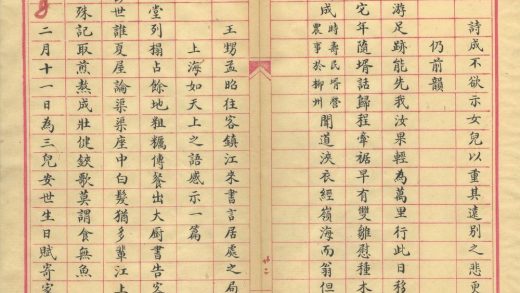 詩成不欲示女兒以重其遠別之悲更
仍前韻
游足跡能先我汝果輕為萬里行此日移
宅年隨壻話歸程牽裾早有雙雛慰種木
成時壽民壻營農事於柳州聞道浹衣經嶺海而翁但
王甥孟昭往客鎮江來書言居處之局
上海如天上之語感示一篇
堂列榻占餘地粗糲傳餐出大厨書告客
世誰夏屋論渠渠座中白髮猶多輩江上
殊記取煎熬成壯健鋏歌莫謂食無魚
二月十一日為三兒安世生日賦寄家